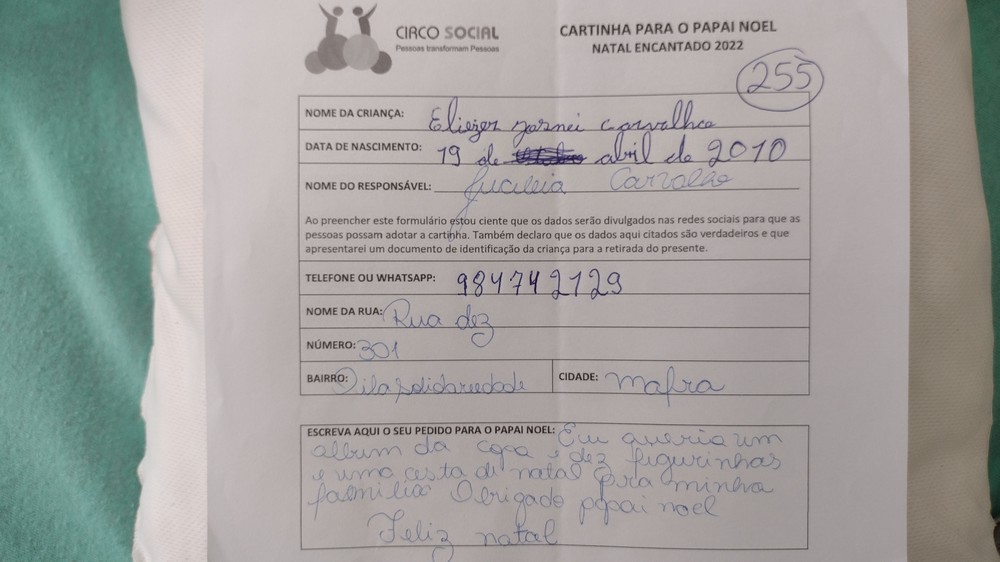 CIRCO SOCIAL
Pessoas transformam Pessoas
CARTINHA PARA O PAPAI NOEL
NATAL ENCANTADO 2022
255
NOME DA CRIANÇA: Eliezer Carvalho
DATA DE NASCIMENTO: 19 de abril de 2010
NOME DO RESPONSÁVEL: Jucileia Carvalho
Ao preencher este formulário estou ciente que os dados serão divulgados nas redes sociais para que as
pessoas possam adotar a cartinha. Também declaro que os dados aqui citados são verdadeiros e que
apresentarei um documento de identificação da criança para a retirada do presente.
TELEFONE OU WHATSAPP: 984742129
NOME DA RUA: Rua dez
NÚMERO: 301
BAIRRO: Vila solidariedade CIDADE: Mafra
ESCREVA AQUI O SEU PEDIDO PARA O PAPAI NOEL: Eu queria um
album da copa e dez figurinhas
e uma cesta de natal pra minha
familia Obrigado papai noel
Feliz natal